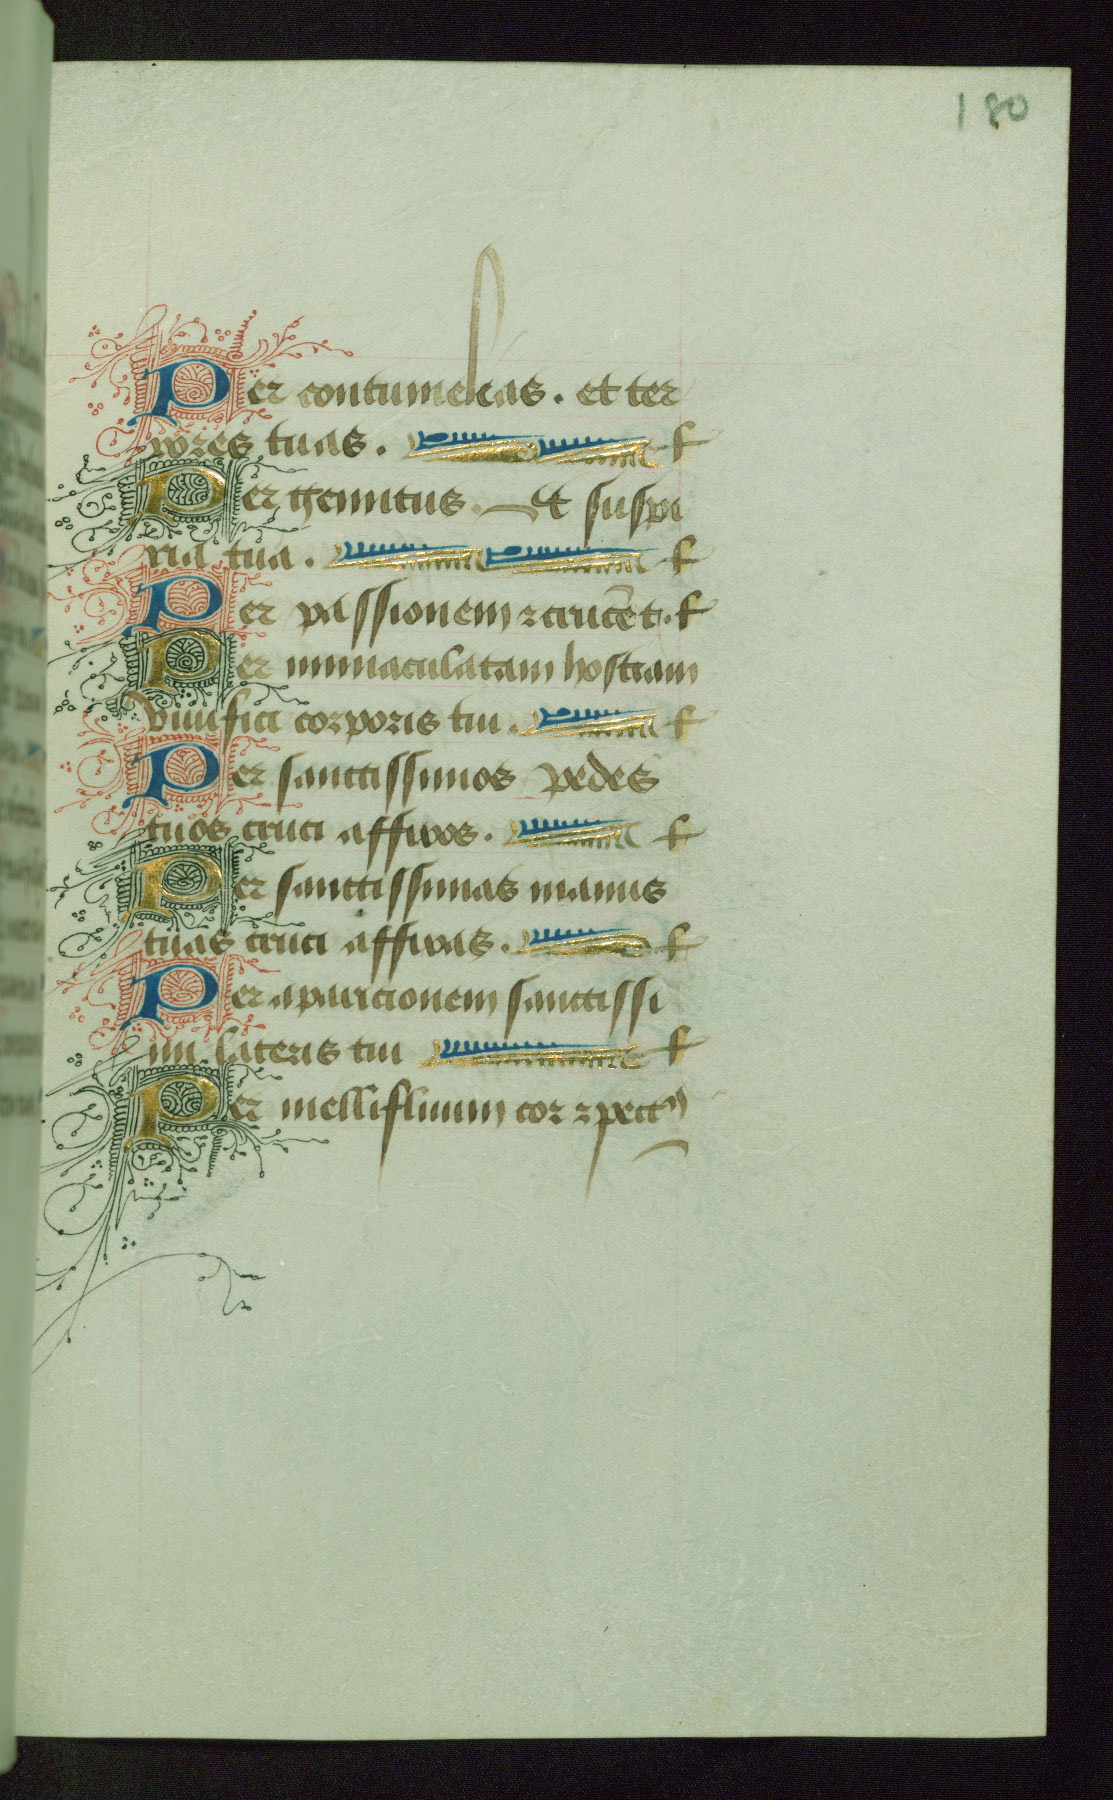 180
Per contumelias. et ter
rores tuas. f
Per gemitus. Et suspi
ria tua. f
Per passionem ⁊ crucē t. f
Per immaculatam hostiam
viuifici corporis tui. f
Per sanctissimos pedes
tuos cruci affixos. f
Per sanctissimas manus
tuas cruci affixas. f
Per aparicionem sanctissi
mi lateris tui f
Per mellifluum cor ⁊ pectꝰ